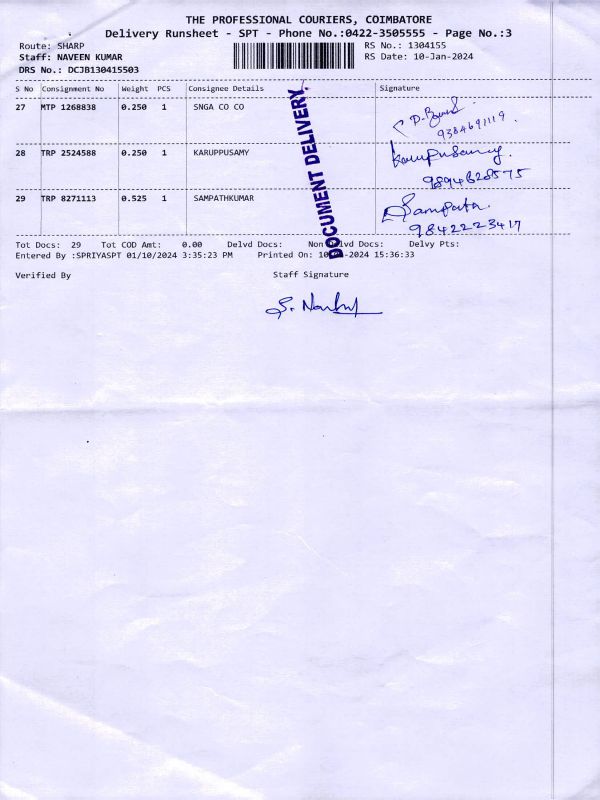 THE PROFESSIONAL COURIERS, COIMBATORE
Delivery Runsheet - SPT - Phone No.:0422-3505555 - Page No.:3
Route: SHARP RS No.: 1304155
Staff: NAVEEN KUMAR RS Date: 10-Jan-2024
DRS No.: DCJB130415503
S No Consignment No Weight PCS Consignee Details Signature
27 MTP 1268838 0.250 1 SNGA CO CO
9384691119
28 TRP 2524588 0.250 1 KARUPPUSAMY Karupusamy.
9894628575
29 TRP 8271113 0.525 1 SAMPATHKUMAR Sampath.
9842223417
DOCUMENT DELIVERY.
Tot Docs: 29 Tot COD Amt: 0.00 Delvd Docs: Non Delvd Docs: Delvy Pts:
Entered By :SPRIYASPT 01/10/2024 3:35:23 PM Printed On: 10- -2024 15:36:33
Verified By Staff Signature